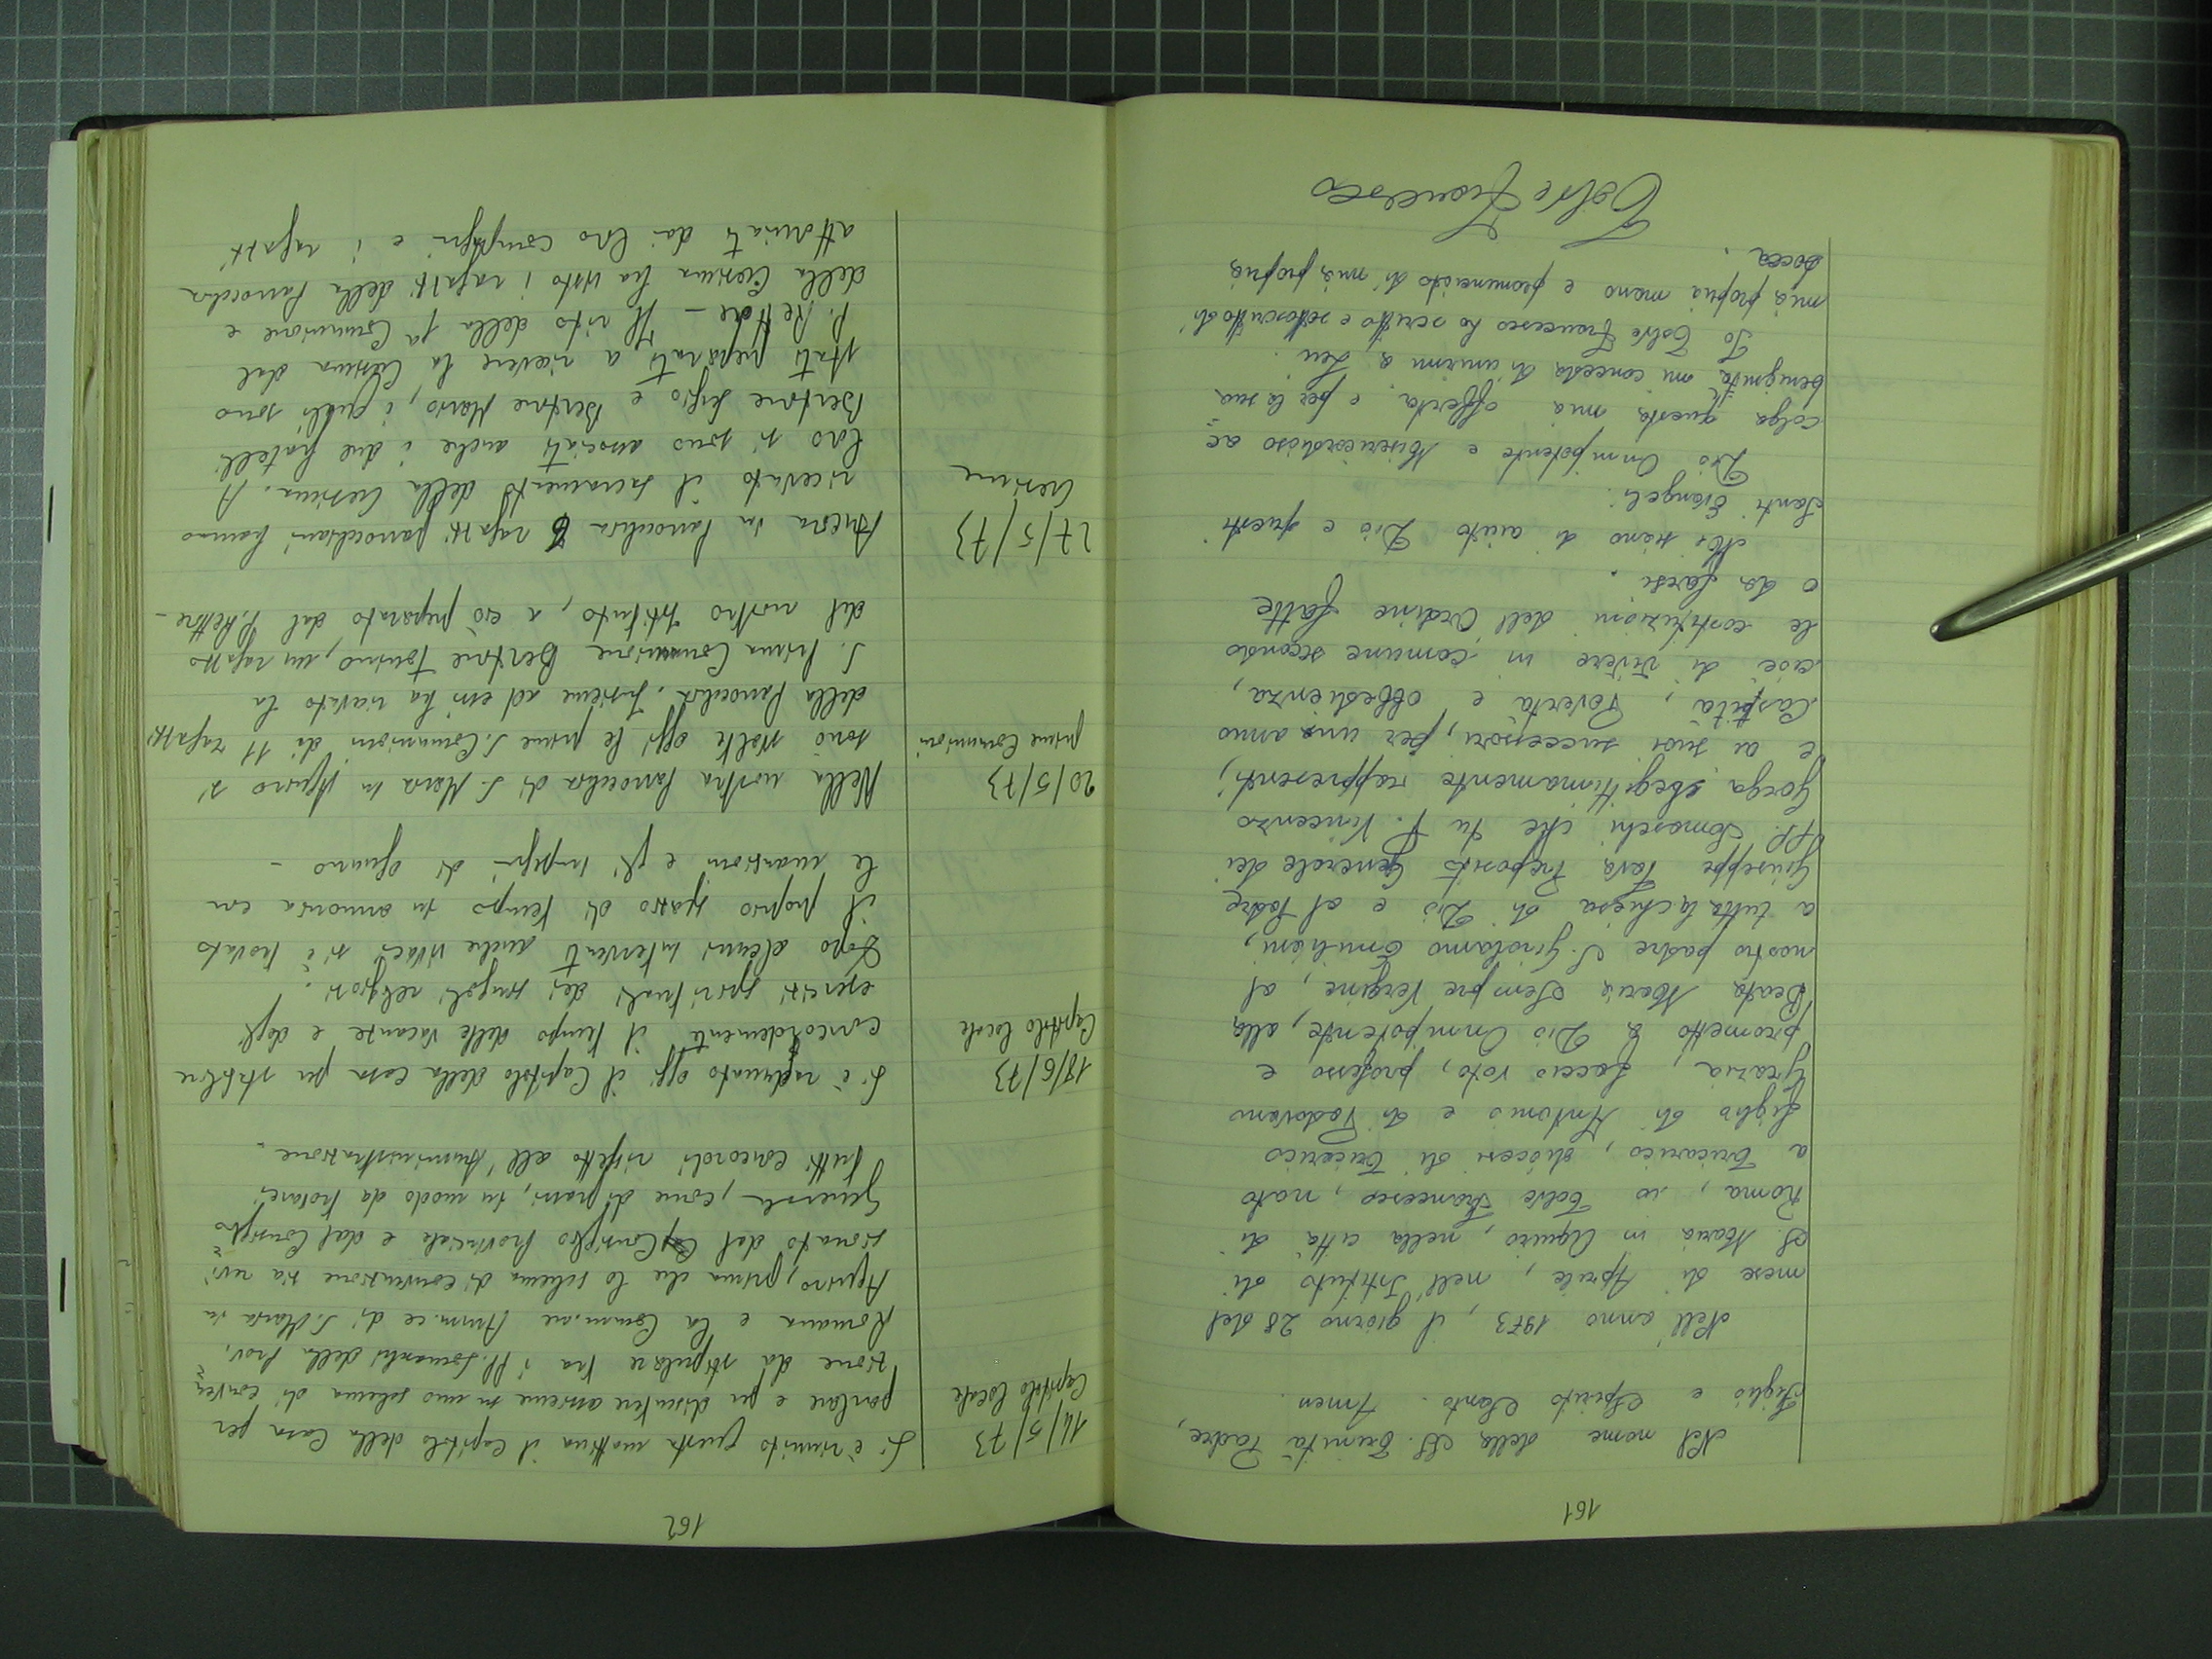 161
Nel nome della SS. Trinità Padre,
Figlio e Spirito Santo. Amen.
Nell'anno 1973, il giorno 28 del
mese di Aprile, nell'Istituto di
S. Maria in Aquiro, nella città di
Roma, io Tolve Francesco, nato
a Tricarico, diocesi di Tricarico
figlio di Antonio e di Padovano
Grazia, faccio voto, professo e
prometto a Dio Onnipotente, alla
Beata Maria Sempre Vergine, al
nostro padre S. Girolamo Emiliani,
a tutta la chiesa di Dio e al Padre
Giuseppe Fava Preposito Generale dei
PP. Somaschi che tu P. Vincenzo
Gorga legittimamente rappresenti,
e ai suoi successori, per un anno
Castità, Povertà e obbedienza,
cioè di vivere in comune secondo
le costituzioni dell'Ordine fatte
o da farsi.
Mi siano di aiuto Dio e questi
Santi Evangeli.
Dio Onnipotente e Misericordioso ac
colga questa mia offerta e per la sua
benignità mi conceda di unirmi a Lui.
Io Tolve Francesco ho scritto e sottoscritto di
mia propria mano e pronunciato di mia propria
bocca.
Tolve Francesco
162
14/5/73
Capitolo locale
S'è riunito questa mattina il Capitolo della Casa per
parlare e per discutere assieme su uno schema di conven
zione da stipulare tra i PP. Somaschi della Prov.
Romana e la Comm.ne Amm.ce di S. Maria in
Aquiro, prima che lo schema di convenzione sia revi
sionato dal Consiglio Provinciale e dal Consiglio
Generale, come di prassi, in modo da trovarci
tutti concordi rispetto all'Amministrazione.
18/6/73
Capitolo locale
S'è radunato oggi il Capitolo della Casa per stabilire
concordemente il tempo delle vacanze e degli
esercizi spirituali dei singoli religiosi.
Dopo alcuni interventi anche vivaci si è trovato
il proprio spazio di tempo in armonia con
le mansioni e gli impegni di ognuno -
20/5/73
prime Comunioni
Nella nostra Parrocchia di S. Maria in Aquiro si
sono svolte oggi le prime S. Comunioni di 11 ragazzi
della Parrocchia. Insieme ad essi ha ricevuto la
S. Prima Comunione Bertone Tonino, un ragazzo
del nostro Istituto, a ciò preparato dal P. Rettore -
27/5/73
Cresime
Ancora in Parrocchia 6 ragazzi parrocchiani hanno
ricevuto il sacramento della Cresima. A
loro si sono associati anche i due fratelli
Bertone Sergio e Bertone Mario, i quali sono
stati preparati a ricevere la Cresima dal
P. Rettore - Il rito della 1ª Comunione e
della Cresima ha visto i ragazzi della Parrocchia
attorniati dai loro compagni e i ragazzi